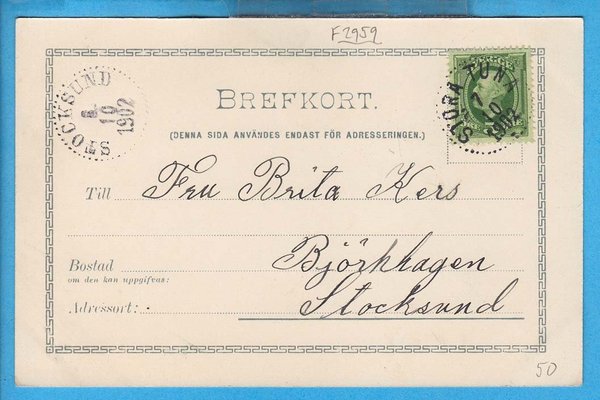 F2959
STOCKSUND
10
1902
BREFKORT.
(DENNA SIDA ANVÄNDES ENDAST FÖR ADRESSERINGEN.)
STORA TUNA
7
10
1902
Till Fru Brita Kers
Bostad Björkhagen
om den kan uppgifvas:
Adressort: Stocksund
50